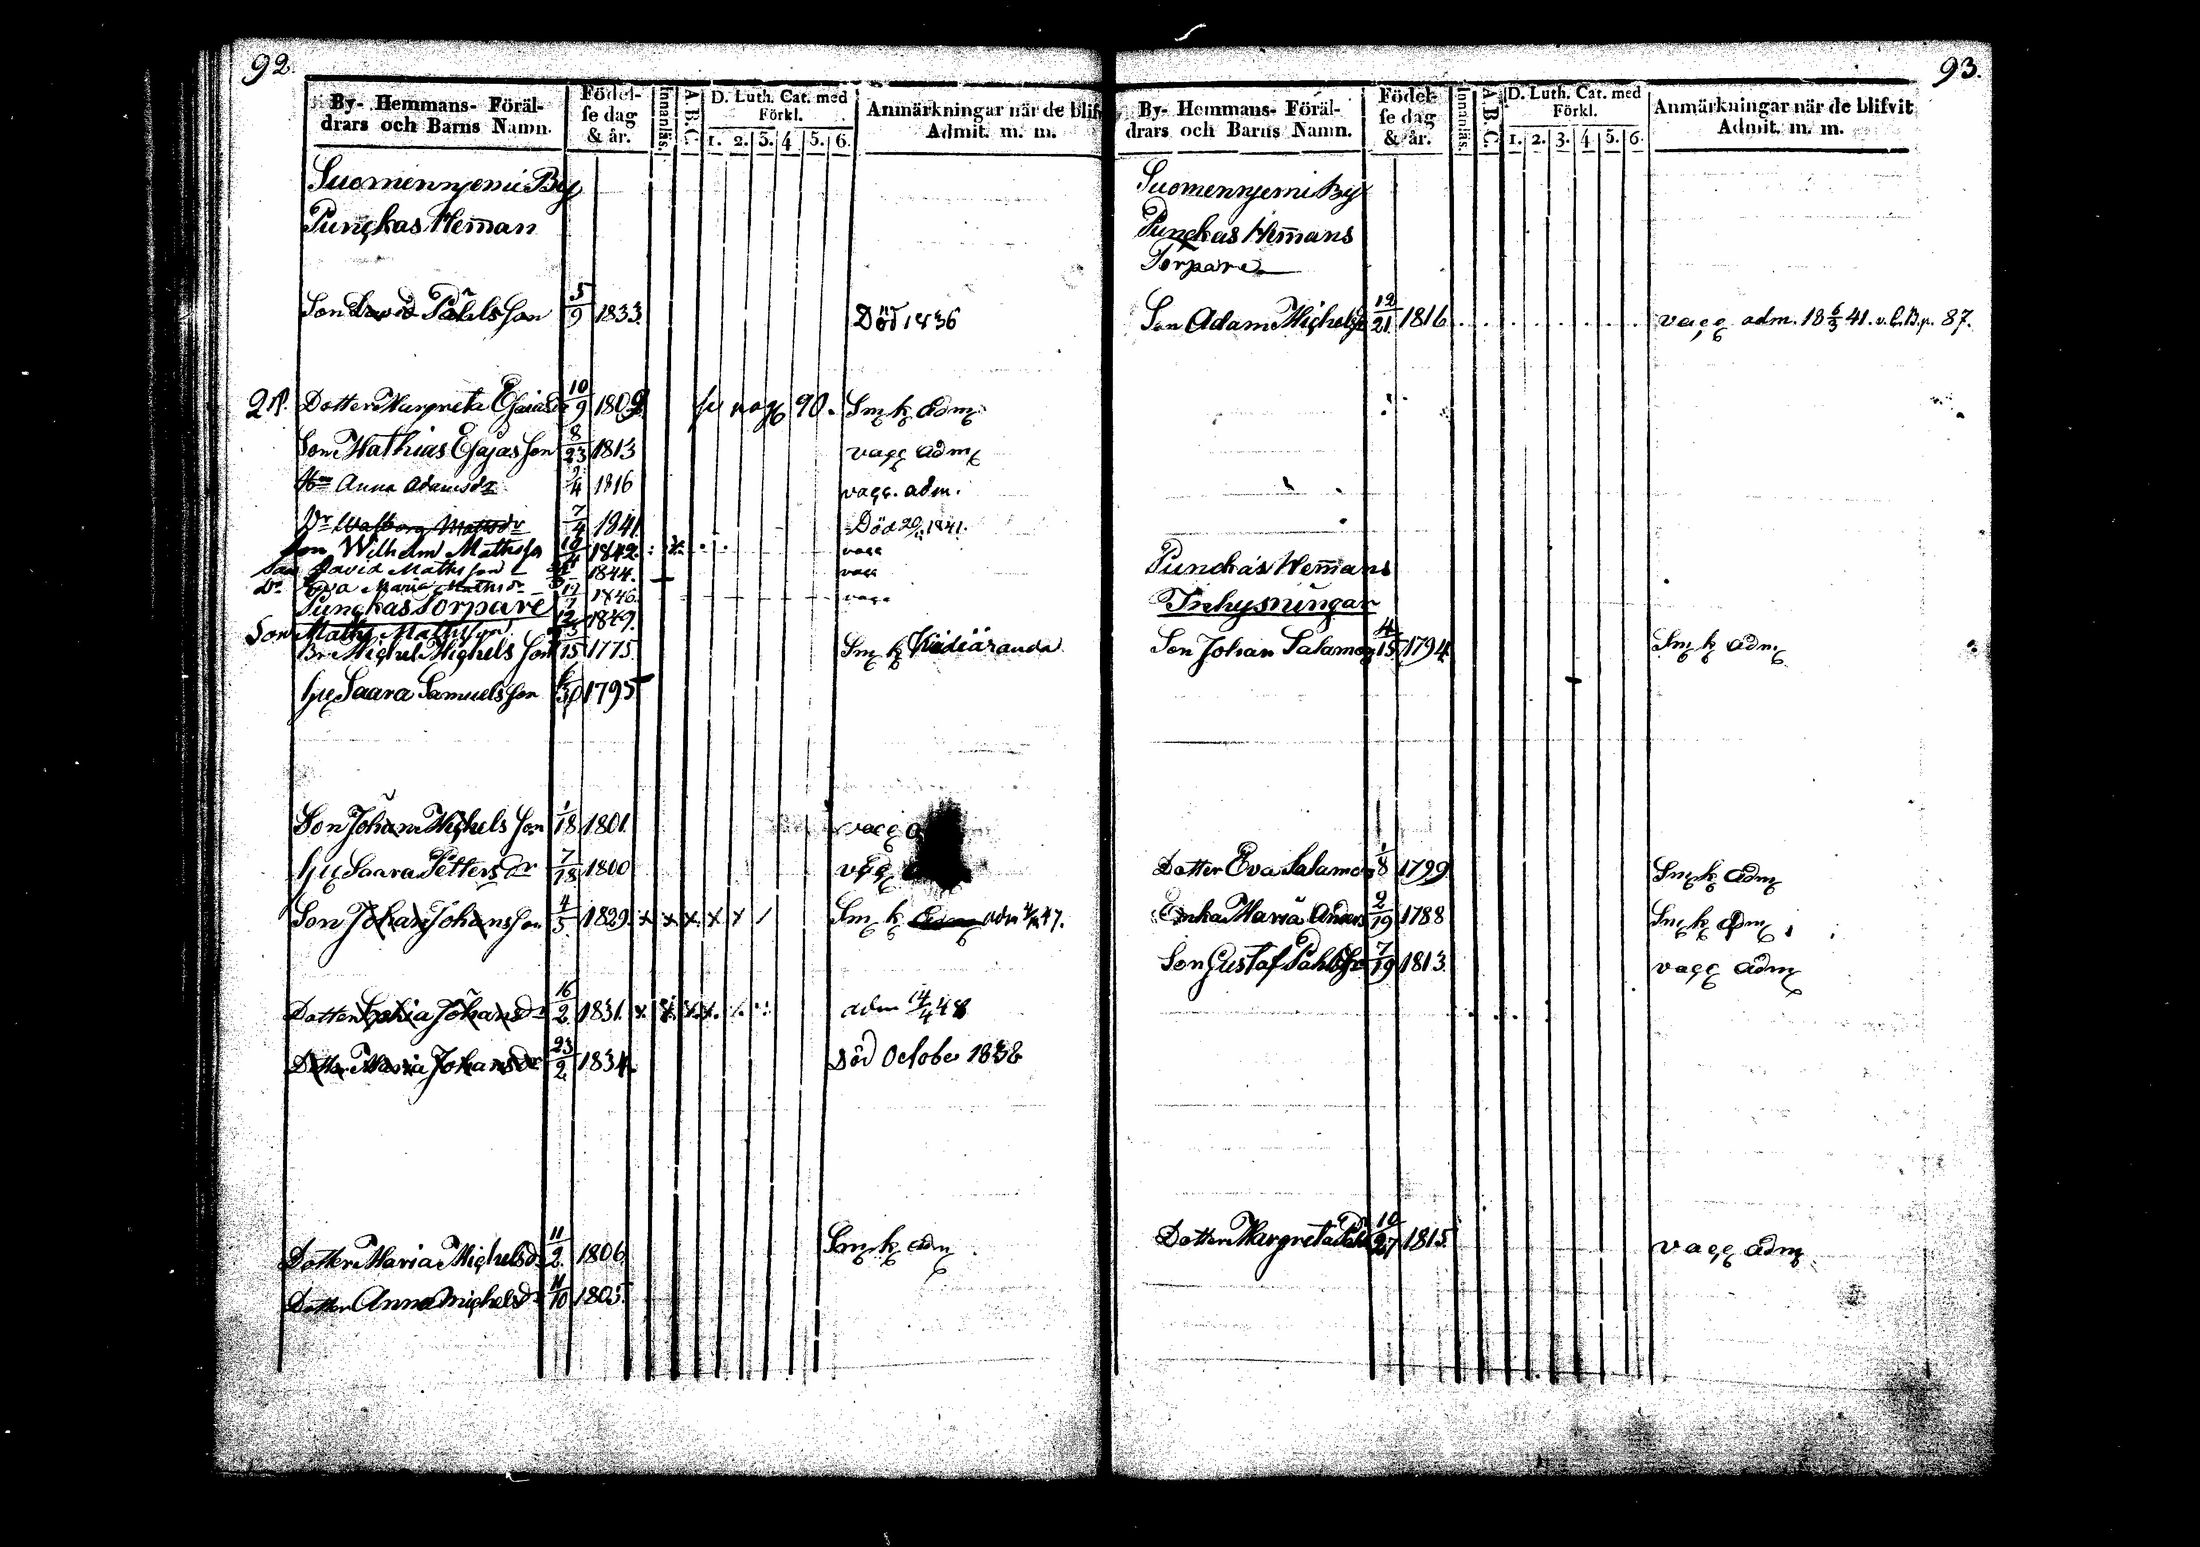 92.
By- Hemmans- Föräl-
drars och Barns Namn.
Födel-
se dag
& år.
Innanläs.
A.B.C.
D. Luth. Cat. med
Förkl.
1. 2. 3. 4 5. 6.
Anmärkningar när de blif
Admit. m. m.
Suomenniemi By
Punckas Heman
Son David Påhls Son 5/9 1833. Död 1836
Dotter Margreta Esaiasdr 10/9 1809 90. Smk adm
Son Mathias Esajas Son 8/23 1813 vacc adm
Anna Adamsdr 2/4 1816 vacc. adm.
Dr Walborg Mathsdr 7/4 1841 Död 1841.
Son Wilhelm Mathsson 1842 vacc
Son David Mathsson 1844. vacc
Dr Eva Maria Mathsdr 1846. vacc
Punckas Torpare
Son Maths Mathsson 1849.
Br Michel Michels Son 15 1775. Smk
Saara Samuels 30 1795
Son Johan Michels Son 1/18 1801. vacc
Saara Petters Dr 7/18 1800 vacc
Son Johan Johansson 4/5 1829 x x x x x / Smk adm 47.
Dotter Johansdr 16/2 1831. adm 14/4 48
Dotter Maria Johansdr 23/2 1834. Död October 1838
Dotter Maria Michelsdr 11/2 1806 Smk adm
Dotter Anna Michelsdr 11/10 1805.
93.
By- Hemmans- Föräl-
drars och Barns Namn.
Födel-
se dag
& år.
Innanläs.
A.B.C.
D. Luth. Cat. med
Förkl.
1. 2. 3. 4 5. 6.
Anmärkningar när de blifvit
Admit. m. m.
Suomenniemi By
Punckas Hemans
Torpare
Son Adam Michels 12/21 1816 vacc adm. 18 6/3 41. v. C.B.p. 87.
Punckas Hemans
Inhysningar
Son Johan Salamon 4/15 1794 Smk adm
Dotter Eva Salamon 1/8 1799 Smk adm
Enka Maria Anders 2/19 1788 Smk adm
Son Gustaf Påhls 7/19 1813 vacc adm
Dotter Margreta 10/27 1815. vacc adm